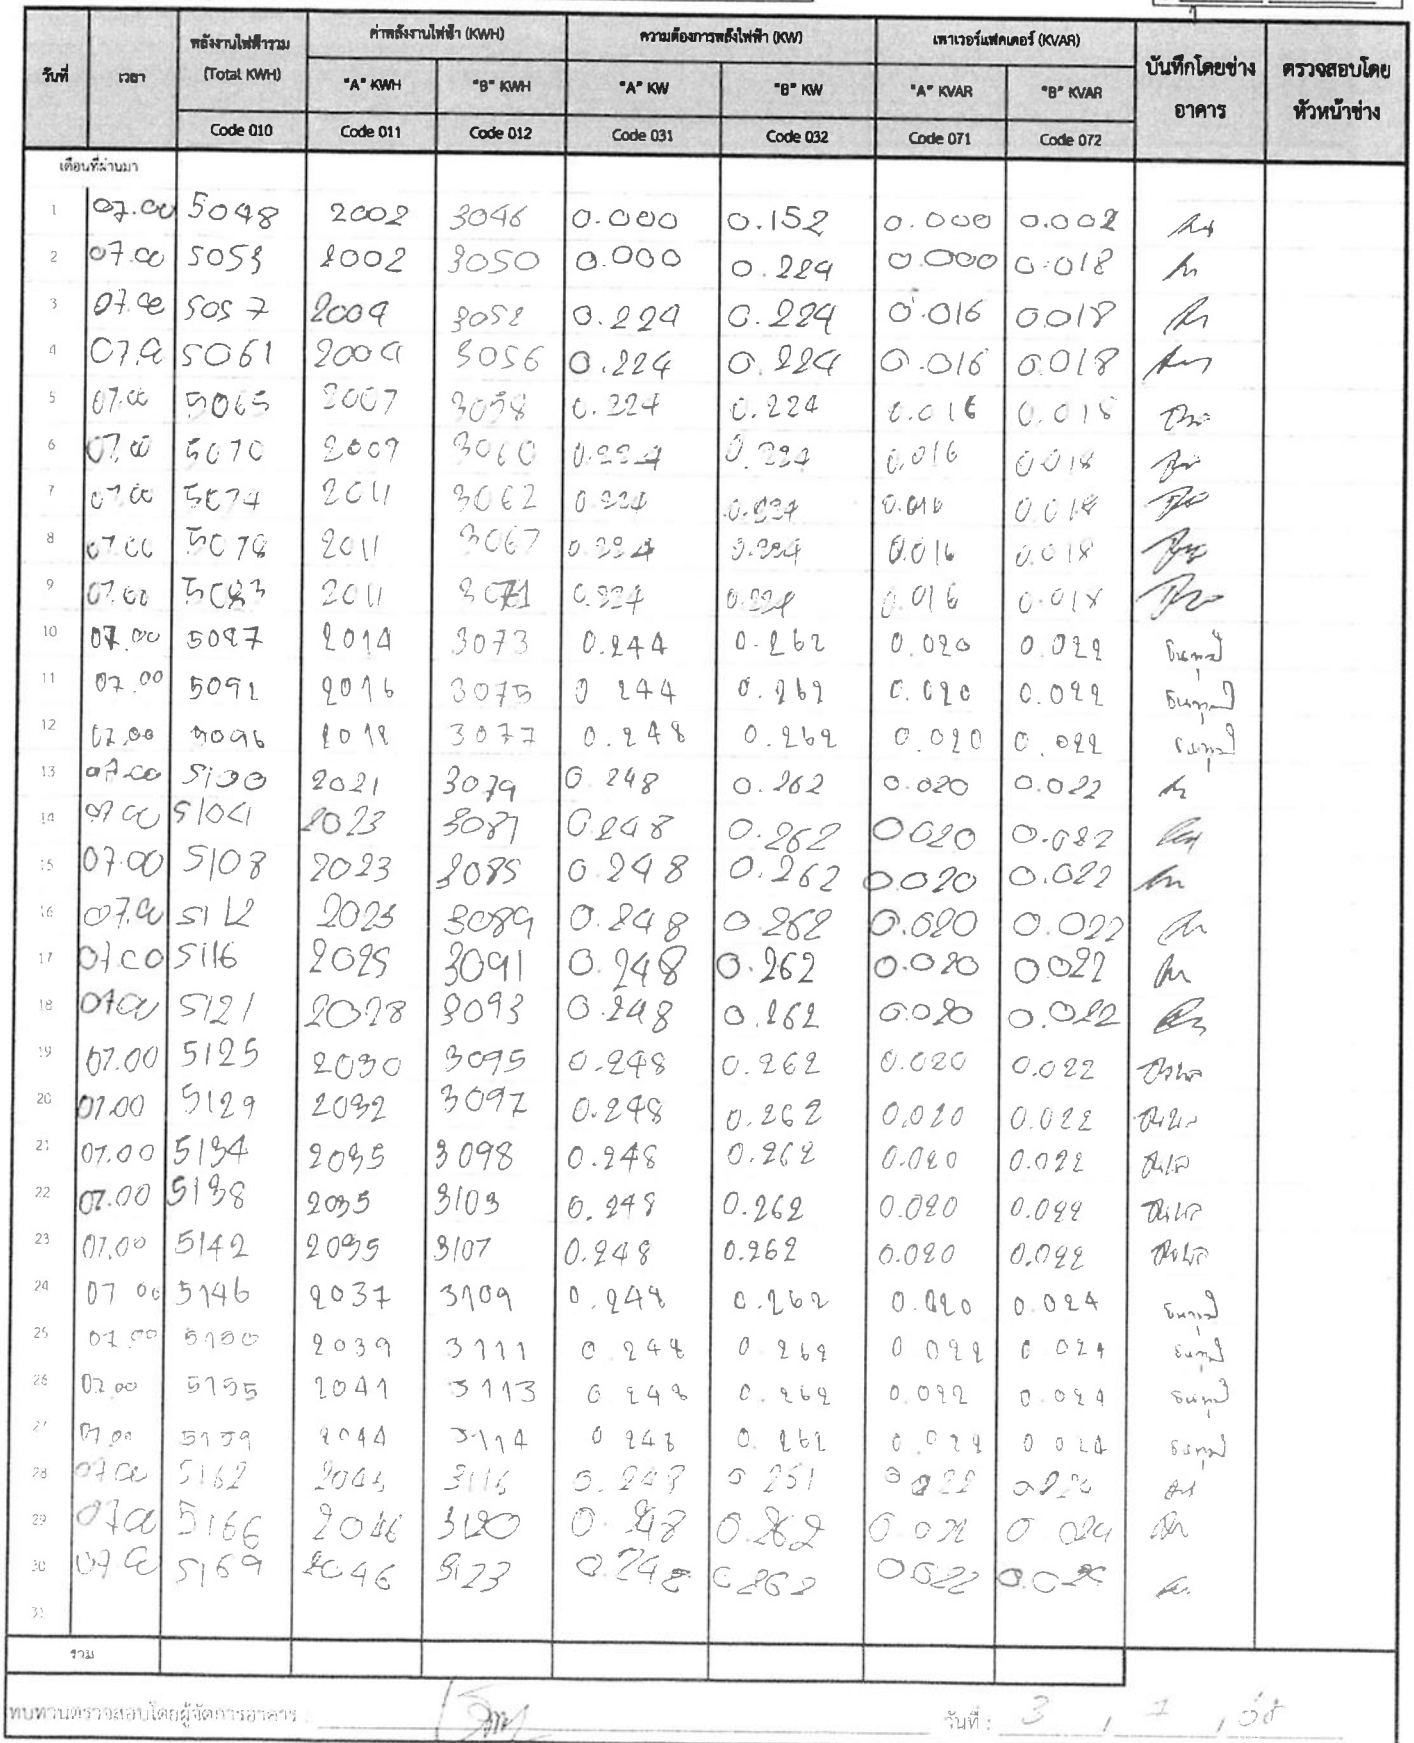 วันที่ เวลา พลังงานไฟฟ้ารวม (Total KWH) ค่าพลังงานไฟฟ้า (KWH) ความต้องการพลังไฟฟ้า (KW) เพาเวอร์แฟคเตอร์ (KVAR) บันทึกโดยช่างอาคาร ตรวจสอบโดยหัวหน้าช่าง
"A" KWH "B" KWH "A" KW "B" KW "A" KVAR "B" KVAR
Code 010 Code 011 Code 012 Code 031 Code 032 Code 071 Code 072
เดือนที่ผ่านมา
1 07.00 5048 2002 3046 0.000 0.152 0.000 0.002
2 07.00 5053 2002 3050 0.000 0.224 0.000 0.018
3 07.00 5057 2004 3052 0.224 0.224 0.016 0.018
4 07.00 5061 2004 3056 0.224 0.224 0.016 0.018
5 07.00 5065 2007 3058 0.224 0.224 0.016 0.018
6 07.00 5070 2009 3060 0.224 0.224 0.016 0.018
7 07.00 5074 2011 3062 0.224 0.224 0.016 0.018
8 07.00 5078 2011 3067 0.224 0.224 0.016 0.018
9 07.00 5083 2011 3071 0.224 0.224 0.016 0.018
10 07.00 5087 2014 3073 0.244 0.262 0.020 0.022
11 07.00 5091 2016 3075 0 244 0.262 0.020 0.022
12 07.00 5096 2018 3077 0.248 0.262 0.020 0.022
13 07.00 5100 2021 3079 0.248 0.262 0.020 0.022
14 07.00 5104 2023 3081 0.248 0.262 0.020 0.022
15 07.00 5108 2023 3085 0.248 0.262 0.020 0.022
16 07.00 5112 2025 3089 0.248 0.262 0.020 0.022
17 07.00 5116 2025 3091 0.248 0.262 0.020 0.022
18 07.00 5121 2028 3093 0.248 0.262 0.020 0.022
19 07.00 5125 2030 3095 0.248 0.262 0.020 0.022
20 07.00 5129 2032 3097 0.248 0.262 0.020 0.022
21 07.00 5134 2035 3098 0.248 0.262 0.020 0.022
22 07.00 5138 2035 3103 0.248 0.262 0.020 0.022
23 07.00 5142 2035 3107 0.248 0.262 0.020 0.022
24 07 00 5146 2037 3109 0.248 0.262 0.020 0.024
25 07.00 5150 2039 3111 0.248 0.262 0.022 0.024
26 07.00 5155 2041 3113 0.248 0.262 0.022 0.024
27 07.00 5159 2044 3114 0 248 0.262 0.022 0 024
28 07.00 5162 3116 0.248
29 07.00 5166 2046 3120 0.248 0.262 0 024
30 07.00 5169 2046 3123 0.248 0.262 0.022
31
รวม
ทบทวนตรวจสอบโดยผู้จัดการอาคาร : วันที่ : 3 / 7 /